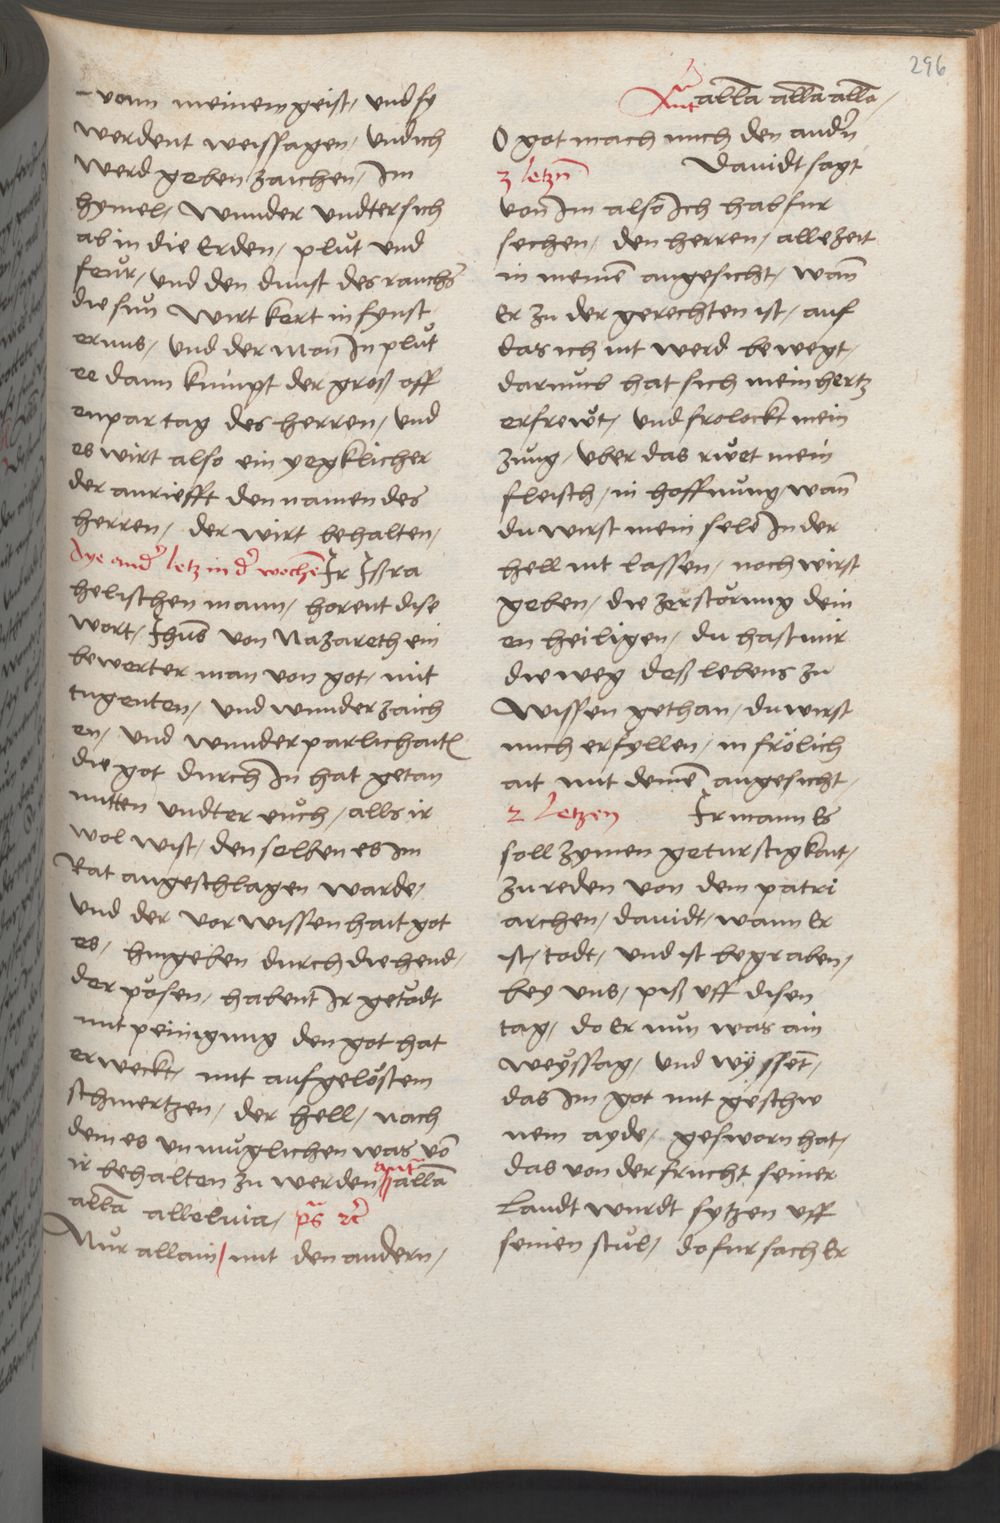 296
vonn meinem geist, und sy
werdent weissagen, und ich
werd geben zaichen, Im
hymel, wunder undter sich
ab in die Erden, plůt und
feůr, und den dunst des rauchs
die sůn wirt kert in fynst
ernus, und der Mon In plůt
ee dann kumpt der groß off
enpar tag des herren, und
es wirt also ein yegklicher
der anriefft den namen des
herren, der wirt behalten,
Dye and' letz in d' wochen Ir Isra
helischen mann, horent dise
wort, Jhus von Nazareth ein
bewerter man von got, mit
tugenten, und wunderzaich
en, und wunderparlichait
die got durch In hat getan
mitten undter eüch, alls ir
wol wist, den selben es Im
Rat angeschlagen warde,
und der vorwissenhait got
es, hingeben durch die hend,
der pősen, habent Ir getődt
mit peinigung den got hat
erweckt, mit aufgelőstem
schmertzen, der hell, nach
dem es unmůglichen was vō
ir behalten zu werden ant allā
allā alleluia, ps
Nůr allain mit den andern,
Ant allā allā allā,
O got mach mich den andn
3 letzn Dauidt sagt
von Im also Ich hab fur
sechen, den herren, alle zeit
in meinē angesicht, wan
Er zu der gerechten ist, auf
das ich nit werd bewegt,
darumb hat sich mein hertz
erfrewt, und frolockt mein
zung, uber das růet mein
fleisch, in hoffnůng, wan
du wirst mein sele In der
hell nit lassen, noch wirst
geben, die zerstőrung dein
en heiligen, du hast mir
die weg deß lebens zu
wissen gethan, du wirst
mich erfyllen, in frőlich
ait mit deinē angesicht,
2 letzen Ir mann Es
soll zymen geturstigkait,
zu reden von dem patri
archen, dauidt, wann Er
ist, todt, und ist begraben,
bey uns, piß uff disen
tag, do Er nun was ain
weyssag, und wyssēt,
das Im got mit geschw
nem ayde, gesworn hat,
das von der frucht seiner
Landt wurdt sytzen uff
seinen stůl, do fursach Er